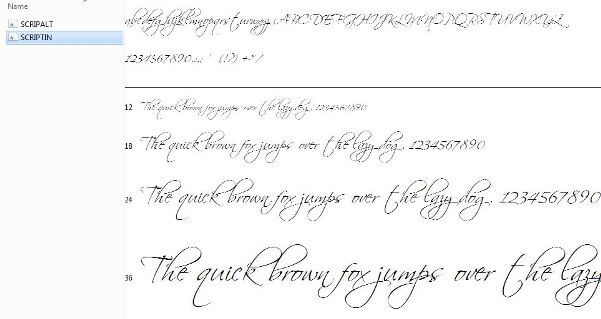 Name
SCRIPALT
SCRIPTIN
abcdefghijklmnopqrstuvwxyz ABCDEFGHIJKLMNOPQRSTUVWXYZ
1234567890.:,; ' " (!?) +-*/
12 The quick brown fox jumps over the lazy dog. 1234567890
18 The quick brown fox jumps over the lazy dog. 1234567890
24 The quick brown fox jumps over the lazy dog. 1234567890
36 The quick brown fox jumps over the lazy